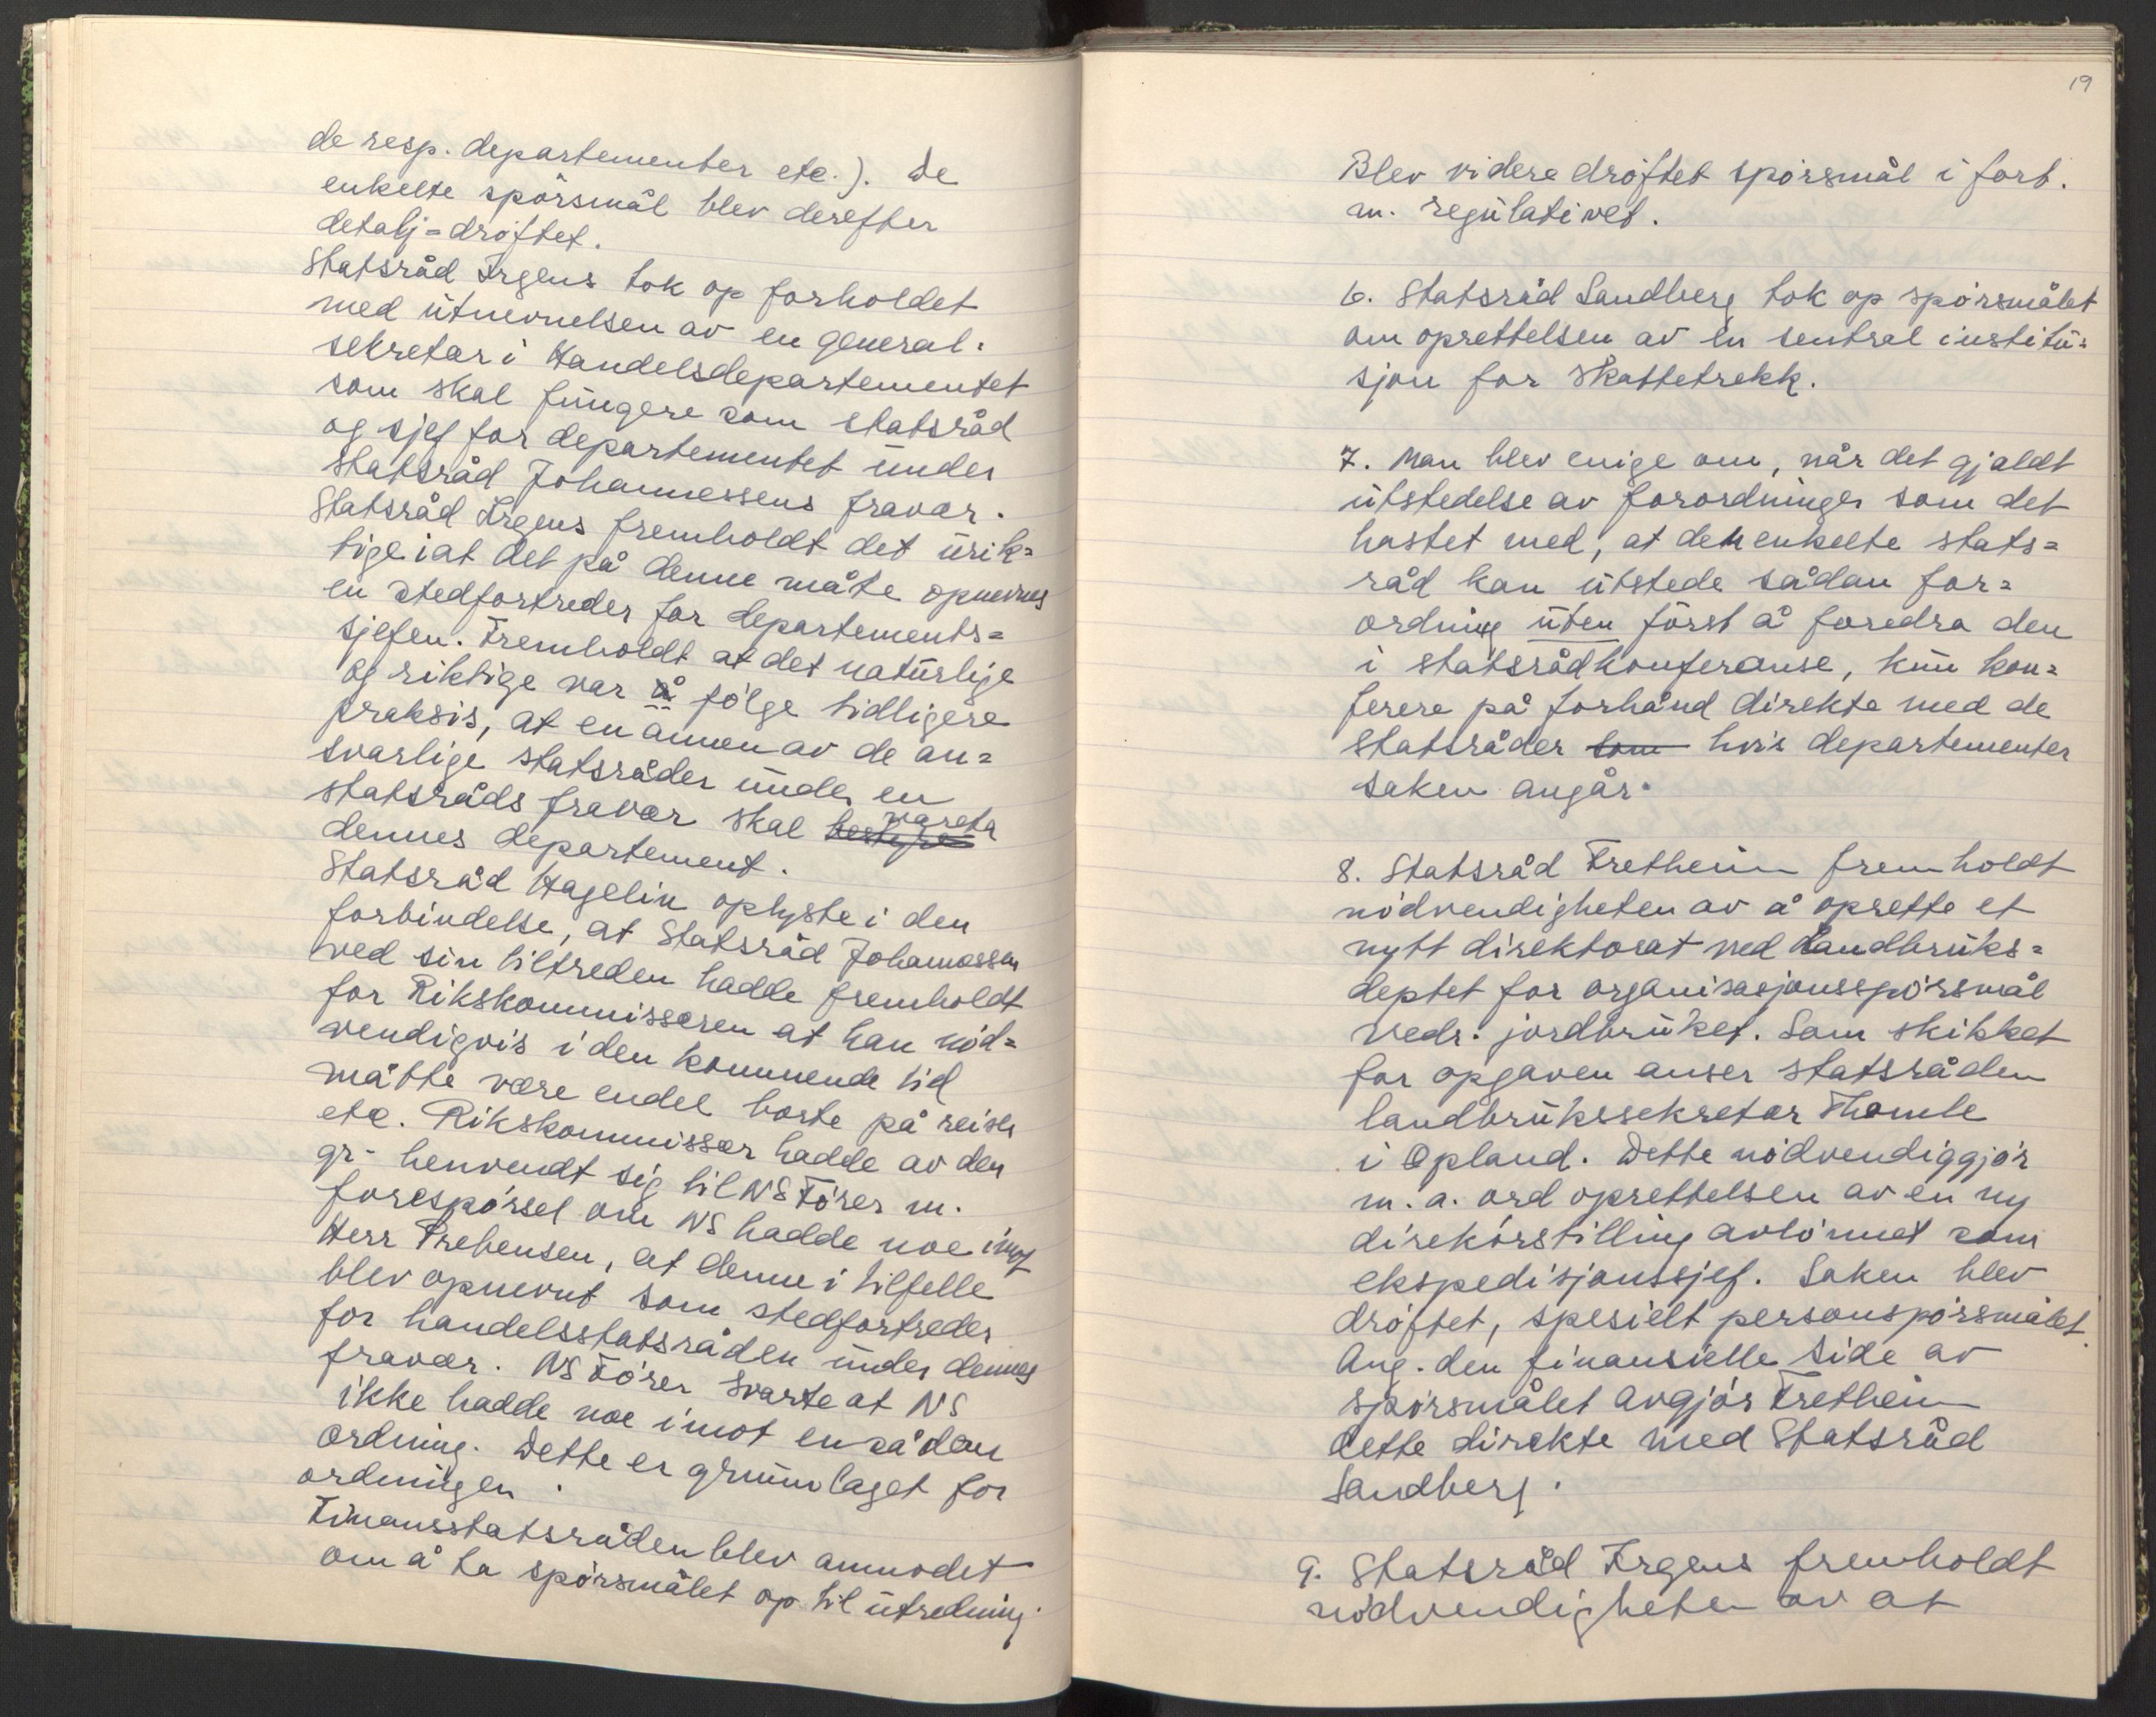 de resp. departementer etc.). De
enkelte spørsmål blev derefter
detalj=drøftet.
Statsråd Irgens tok op forholdet
med utnevnelsen av en general=
sekretær i Handelsdepartementet
som skal fungere som statsråd
og sjef for departementet under
Statsråd Johannessens fravær.
Statsråd Irgens fremholdt det urik=
tige i at det på denne måte opnevnes
en stedfortreder for departements=
sjefen. Fremholdt at det naturlige
og riktige var å følge tidligere
praksis, at en annen av de an=
svarlige statsråder under en
statsråds fravær skal bestyre vareta
dennes departement.
Statsråd Hagelin oplyste i den
forbindelse, at Statsråd Johannessen
ved sin tiltreden hadde fremholdt
for Rikskommissæren at han nød=
vendigvis i den kommende tid
måtte være endel borte på reiser
etc. Rikskommissær hadde av den
gr. henvendt sig til NS Fører m.
forespørsel om NS hadde noe imot
Herr Prebensen, at denne i tilfelle
blev opnevnt som stedfortreder
for handelsstatsråden under dennes
fravær. NS Fører svarte at NS
ikke hadde noe imot en sådan
ordning. Dette er grunnlaget for
ordningen.
Finansstatsråden blev anmodet
om å ta spørsmålet op til utredning.
19
Blev videre drøftet spørsmål i forb.
m. regulativet.
6. Statsråd Sandberg tok op spørsmålet
om oprettelsen av en sentral institu=
sjon for skattetrekk.
7. Man blev enige om, når det gjaldt
utstedelse av forordninger som det
hastet med, at den enkelte stats=
råd kan utstede sådan for=
ordning uten først å foredra den
i statsrådkonferanse, kun kon=
ferere på forhånd direkte med de
Statsråder som hvis departementer
saken angår.
8. Statsråd Fretheim fremholdt
nødvendigheten av å oprette et
nytt direktorat ved Landbruks=
deptet for organisasjonsspørsmål
vedr. jordbruket. Som skikket
for opgaven anser statsråden
landbrukssekretær Thomle
i Opland. Dette nødvendiggjør
m. a. ord oprettelsen av en ny
direkørstilling avlønnet som
ekspedisjonssjef. Saken blev
drøftet, spesielt personspørsmålet.
Ang. den finansielle side av
spørsmålet avgjør Fretheim
dette direkte med Statsråd
Sandberg.
9. Statsråd Irgens fremholdt
nødvendigheten av at